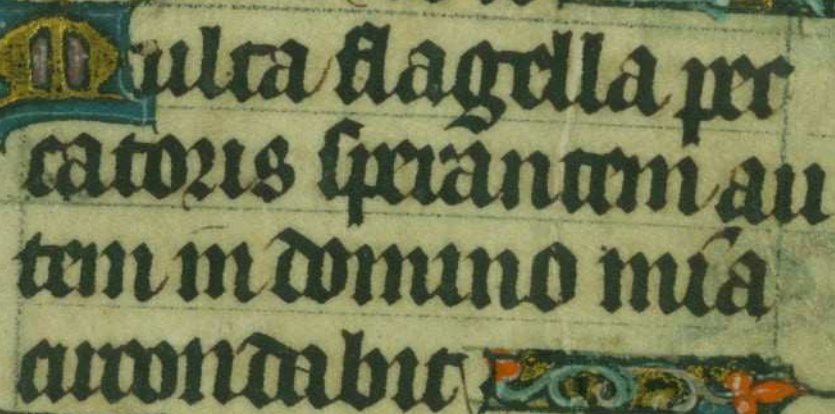 Multa flagella pec
catoris sperantem au
tem in domino mia
circondabit